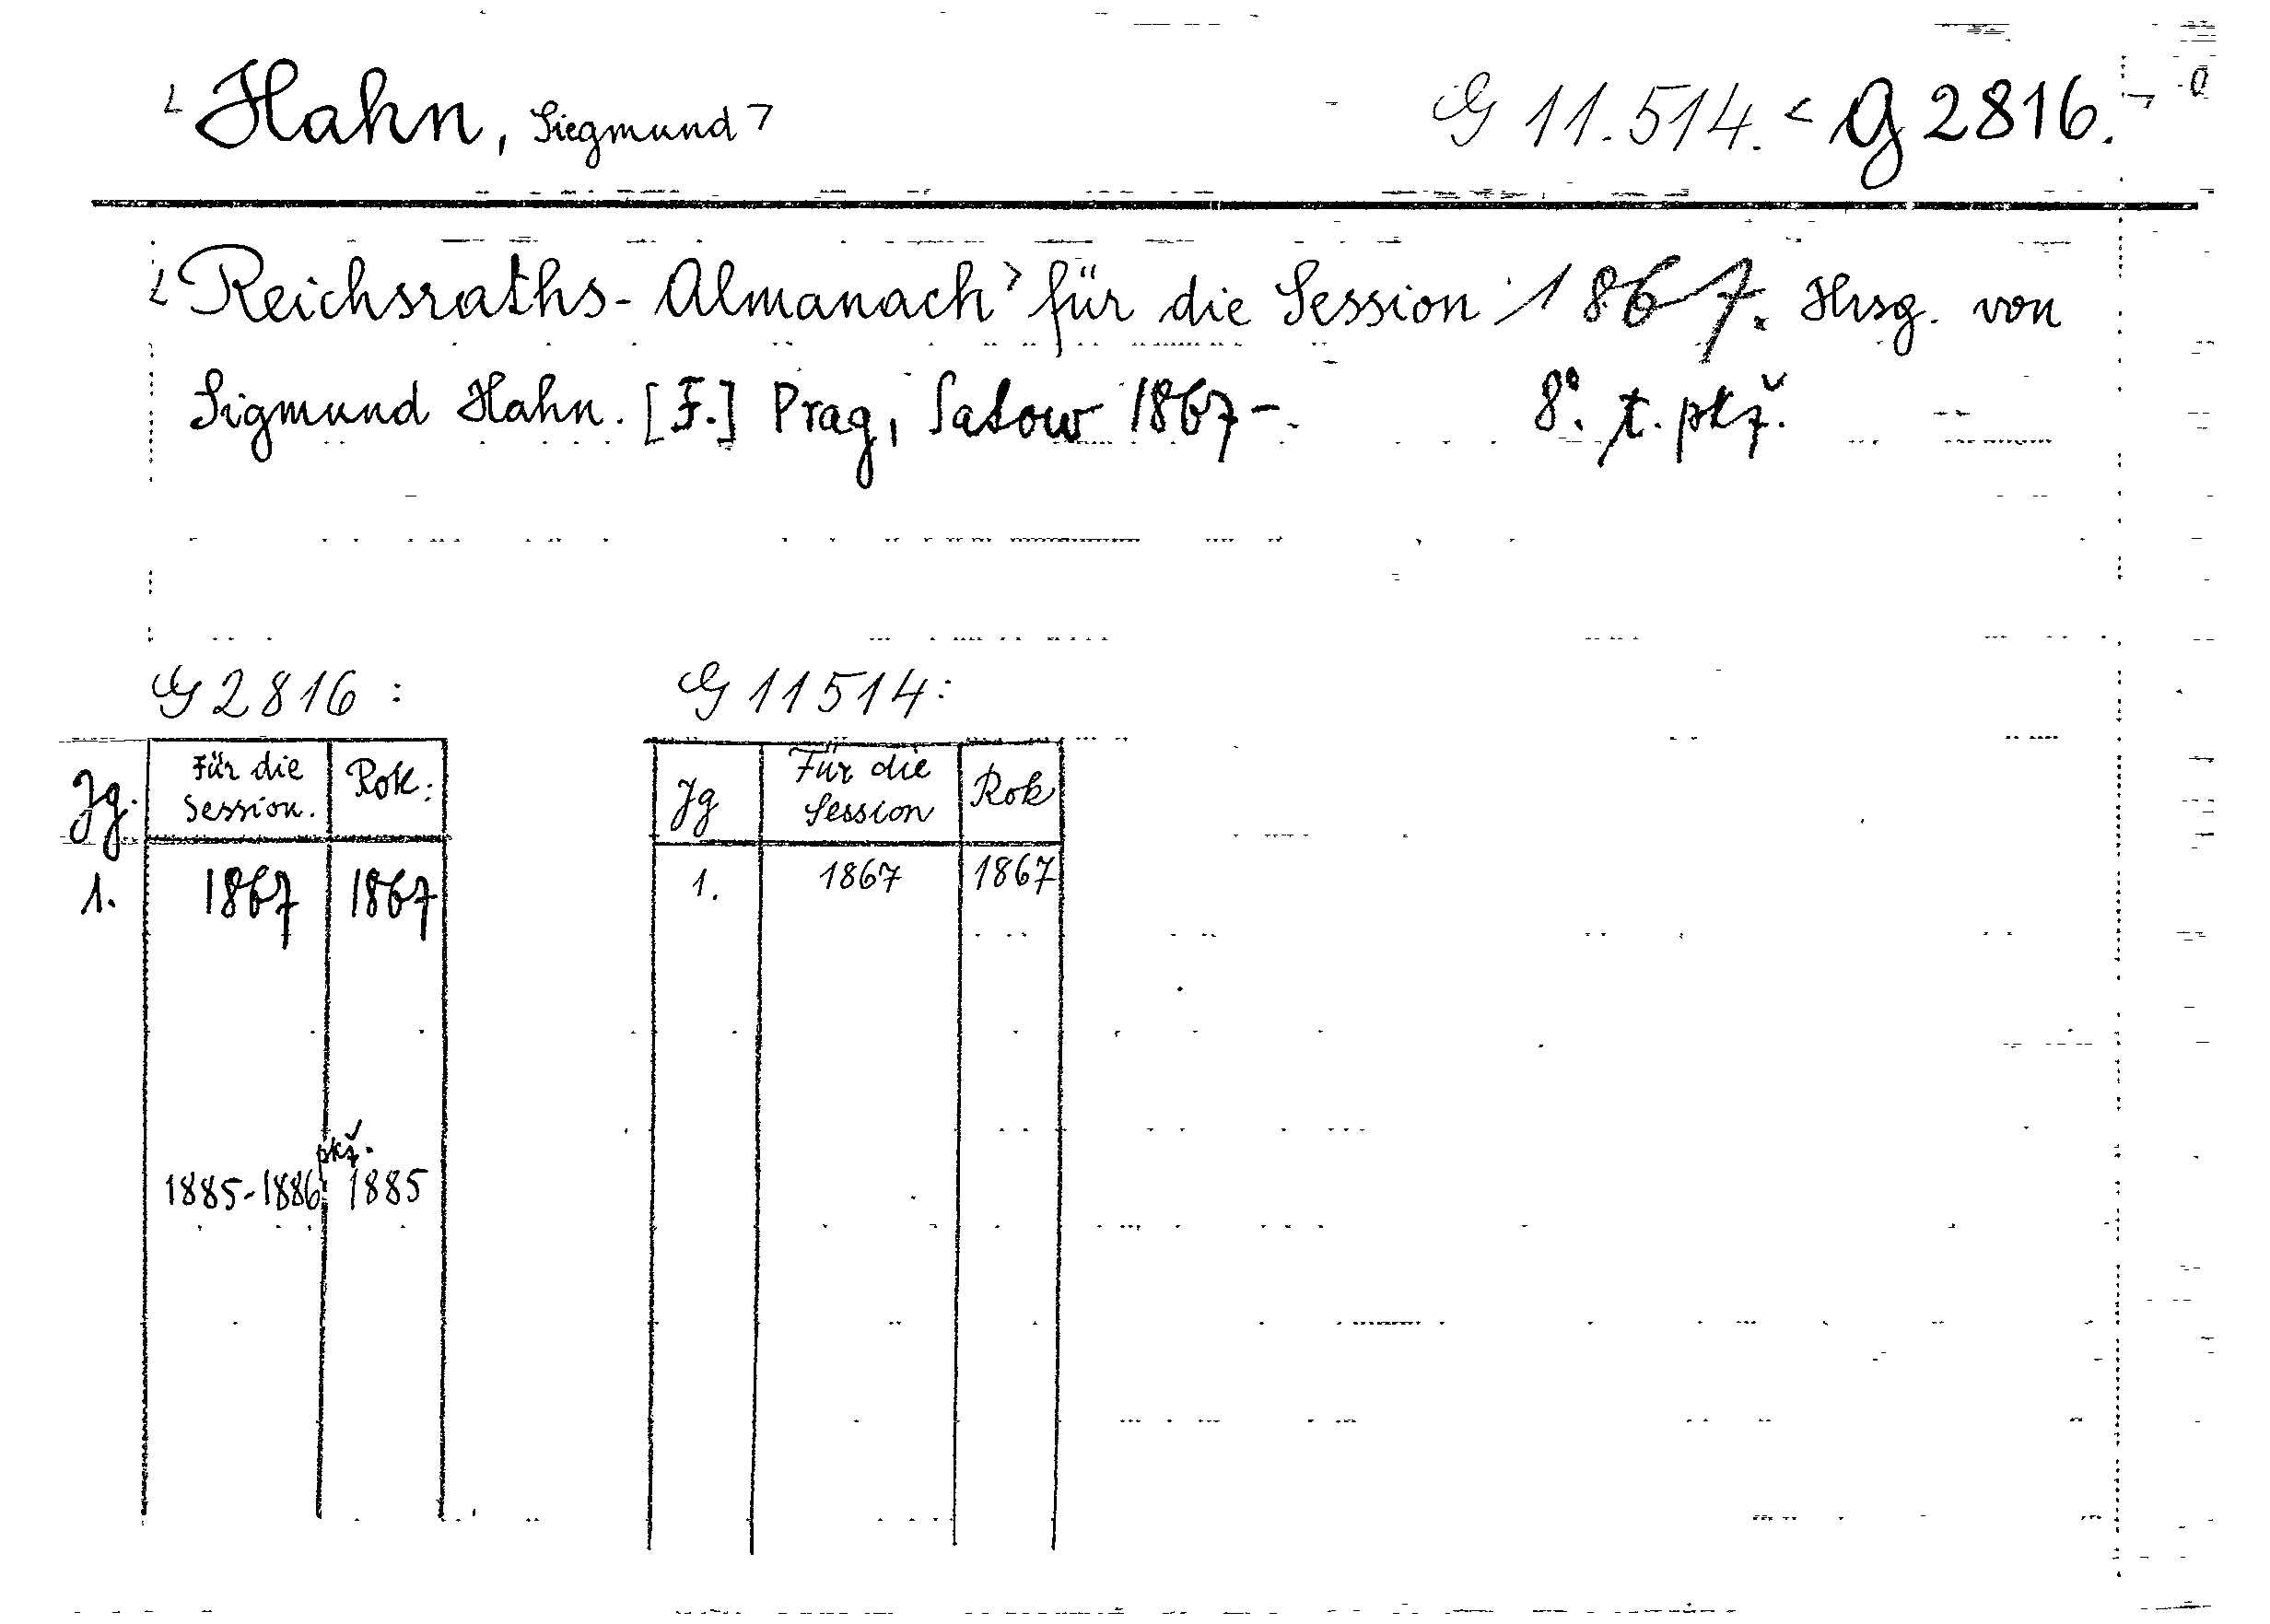 Hahn, Siegmund G 11.514. < G 2816.
Reichsraths-Almanach für die Session 1867. Hrsg. von
Sigmund Hahn. [F.] Prag, Satow 1867-. 8°. t. pkž.
G 2816: G 11514:
Jg. Für die Session. Rok: Jg Für die Session Rok
1. 1867 1867 1. 1867 1867
pkž.
1885-1886 1885